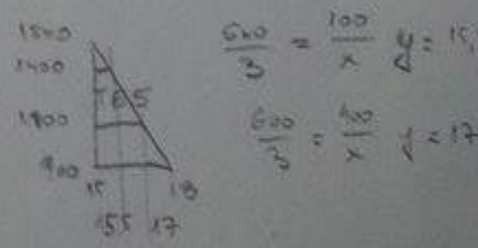 1500
1400
1100
900
15
18
15.5 17
600/3 = 100/x y = 15,
600/3 = 400/x y = 17